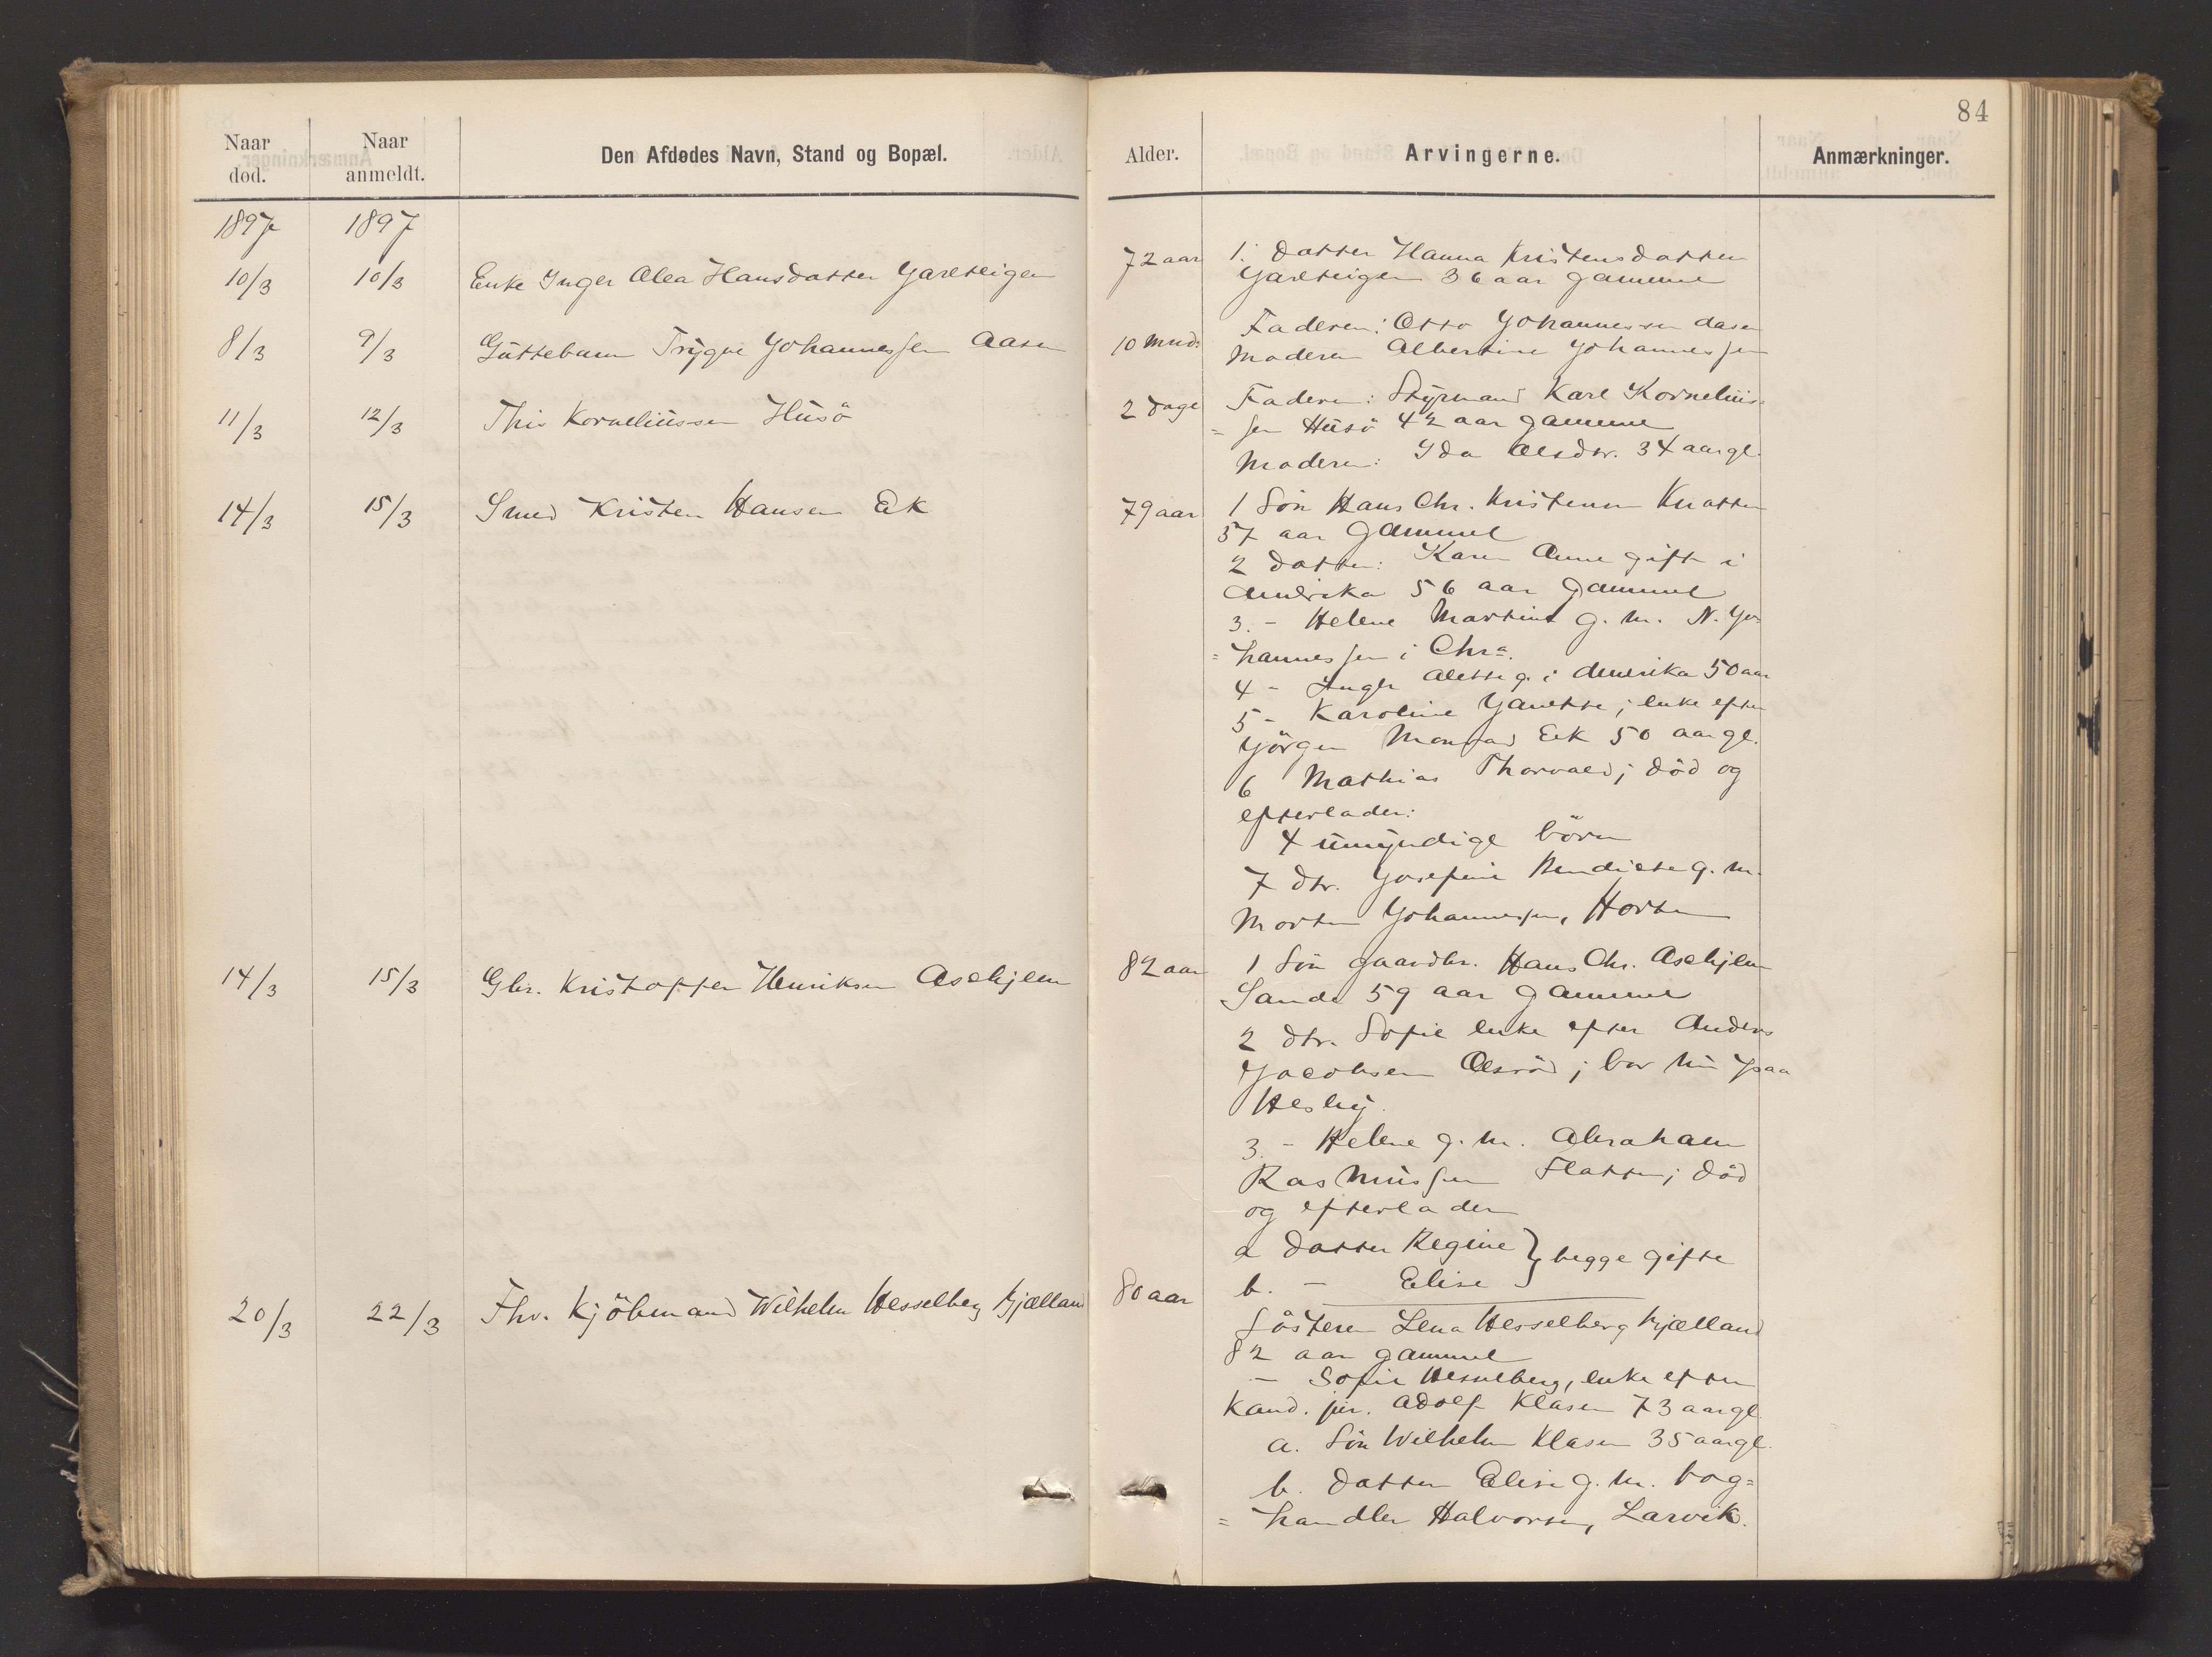 84
Naar død.
Naar anmeldt.
Den Afdødes Navn, Stand og Bopæl.
Alder.
Arvingerne.
Anmærkninger.
1897 1897
10/3 10/3 Enke Inger Olea Hansdatter Jarlteigen
72 aar
1. Datter Hanna Kristensdatter
Jarlteigen 36 aar gammel
8/3 9/3 Guttebarn Trygve Johannessen Aasen
10 mnd.
Faderen: Otto Johannessen Aasen
Moderen Albertine Johannessen
11/3 12/3 This Korneliussen Husö
2 dage
Faderen: Styrmand Karl Kornelius=
=sen Husö 42 aar gammel
Moderen: Ida Olsdtr. 34 aar gl.
14/3 15/3 Smed Kristen Hansen Ek
79 aar
1 Sön Hans Chr. Kristensen Knatten
57 aar gammel
2 Datter: Karen Anne gift i
Amerika 56 aar gammel
3. - Helene Martine g. m. N. Jo=
=hannessen i Chra.
4 - Inger Olette g. i Amerika 50 aar
5 - Karoline Janette; enke efter
Jörgen Monsad Eek 50 aar gl.
6 Mathias Thorvald; död og
efterlader:
4 umyndige börn
7 dtr. Josefine Bendicte g. m.
Morten Johannessen, Horten
14/3 15/3 Gbr. Kristoffer Henriksen Askjem
82 aar
1 Sön gaardbr. Hans Chr. Askjem
Sande 59 aar gammel
2 dtr. Sofie enke efter Anders
Jacobsen Olsröd; bor nu paa
Hesby.
3. - Helene g. m. Abraham
Rasmussen Flatten; död
og efterlader
a Datter Regine } begge gifte
b. - Elise
20/3 22/3 Fhv. Kjöbmand Wilhelm Hesselberg Kjælland
80 aar
Sösteren Lena Hesselberg Kjælland
82 aar gammel
- Sofie Hesselberg, enke efter
Kand. jur. Adolf Klasen 73 aar gl.
a. Sön Wilhelm Klasen 35 aar gl.
b. Datter Elise g. m. bog=
=handler Halvorsen, Larvik.